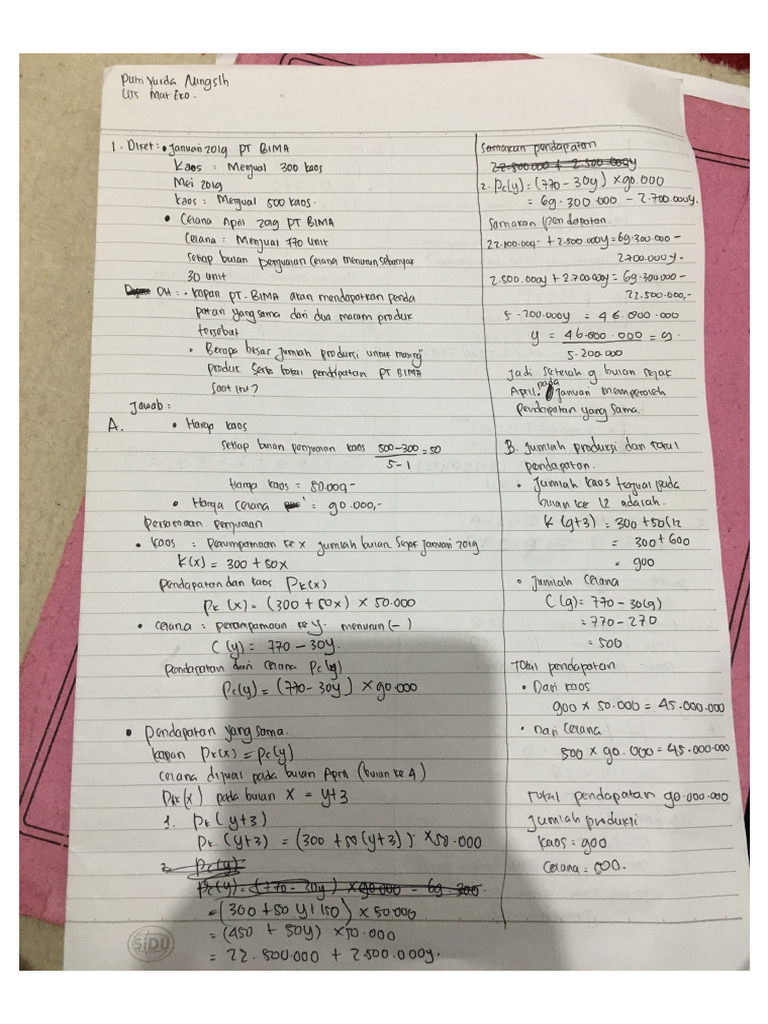 Putri Yurda Ningsih
UTS Mat Eko.
1. Diket : • Januari 2019 PT BIMA
Kaos : Menjual 300 kaos
Mei 2019
Kaos : Menjual 500 kaos.
• Celana April 2019 PT BIMA
Celana : Menjual 770 unit
Setiap bulan penjualan celana menurun sebanyak
30 unit
Dit : • kapan PT. BIMA akan mendapatkan penda
patan yang sama dari dua macam produk
tersebut
• Berapa besar jumlah produksi untuk masing²
produk serta total pendapatan PT BIMA
saat itu?
Jawab :
A. • Harga kaos
setiap bulan penjualan kaos 500-300 = 50
5-1
Harga kaos = 50.000,-
• Harga celana = 90.000,-
Persamaan penjualan
• Kaos : perumpamaan ke x jumlah bulan sejak Januari 2019.
K(x) = 300 + 50x
Pendapatan dari kaos Pk(x)
Pk (x) = (300 + 50x) x 50.000
• celana : perumpamaan ke y. menurun (-)
C (y) = 770 - 30y.
Pendapatan dari celana Pc(y)
Pc(y) = (770-30y) x 90.000
• Pendapatan yang sama.
kapan Pk(x) = Pc(y)
celana dijual pada bulan April (bulan ke 4)
Pk(x) pada bulan x = y+3
1. Pk (y+3)
Pk (y+3) = (300 + 50(y+3)) x 50.000
2. Pc(y)
Pc(y) = (770 - 30y) x 90.000 = 69.300.
= (300 + 50 y + 150) x 50.000
= (450 + 50y) x 50.000
= 22.500.000 + 2.500.000y.
SIDU
Samakan pendapatan
22.500.000 + 2.500.000y
2. Pc(y) = (770 - 30y) x 90.000
= 69.300.000 - 2.700.000y.
Samakan pendapatan.
22.500.000 + 2.500.000y = 69.300.000 -
2.700.000y.
2.500.000y + 2.700.000y = 69.300.000 -
22.500.000,-
5.200.000y = 46.800.000
y = 46.800.000 = 9.
5.200.000
Jadi setelah 9 bulan sejak
April. pada Januari memperoleh
pendapatan yang sama.
B. Jumlah produksi dan total
pendapatan.
• Jumlah kaos terjual pada
bulan ke 12 adalah.
K (9+3) = 300 + 50(12
= 300 + 600
= 900
• Jumlah celana
C (9) = 770 - 30(9)
= 770 - 270
= 500
Total pendapatan
• Dari kaos
900 x 50.000 = 45.000.000
• Dari celana
500 x 90.000 = 45.000.000
Total pendapatan 90.000.000
Jumlah produksi
Kaos : 900
Celana : 500.